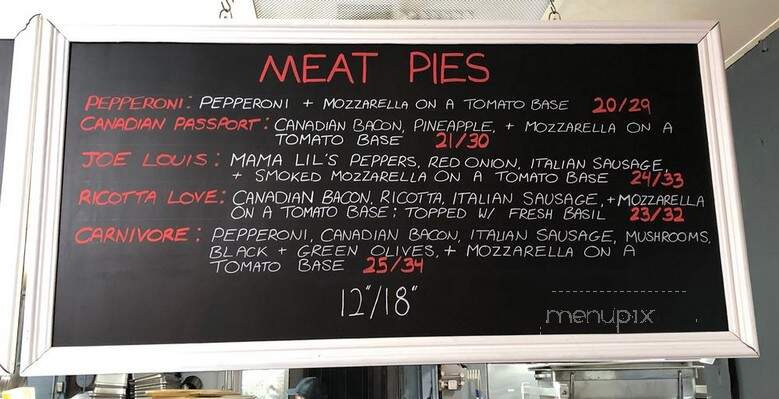 MEAT PIES
PEPPERONI: PEPPERONI + MOZZARELLA ON A TOMATO BASE 20/29
CANADIAN PASSPORT: CANADIAN BACON, PINEAPPLE, + MOZZARELLA ON A
TOMATO BASE 21/30
JOE LOUIS: MAMA LIL'S PEPPERS, RED ONION, ITALIAN SAUSAGE,
+ SMOKED MOZZARELLA ON A TOMATO BASE 24/33
RICOTTA LOVE: CANADIAN BACON, RICOTTA, ITALIAN SAUSAGE, + MOZZARELLA
ON A TOMATO BASE: TOPPED W/ FRESH BASIL 23/32
CARNIVORE: PEPPERONI, CANADIAN BACON, ITALIAN SAUSAGE, MUSHROOMS,
BLACK + GREEN OLIVES, + MOZZARELLA ON A
TOMATO BASE 25/34
12"/18"
menupix